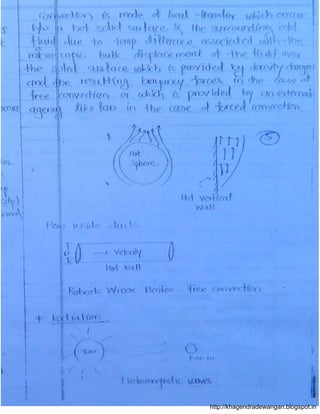 Convection is mode of heat transfer which occur
b/w a hot solid surface & the surrounding cold
fluid due to temp difference associated with the
macroscopic bulk displacement of the fluid over
the solid surface which is provided by density changes
and the resulting buoyancy forces in the case of
free convection or which is provided by an external
agency like fan in the case of forced convection.
5
Hot
Sphere
Hot vertical
wall
Flow inside ducts
→ Velocity
Hot Wall
Wilcox Boiler - free convection
* Radiation
Sun
Electromagnetic waves
http://khagendradewangan.blogspot.in